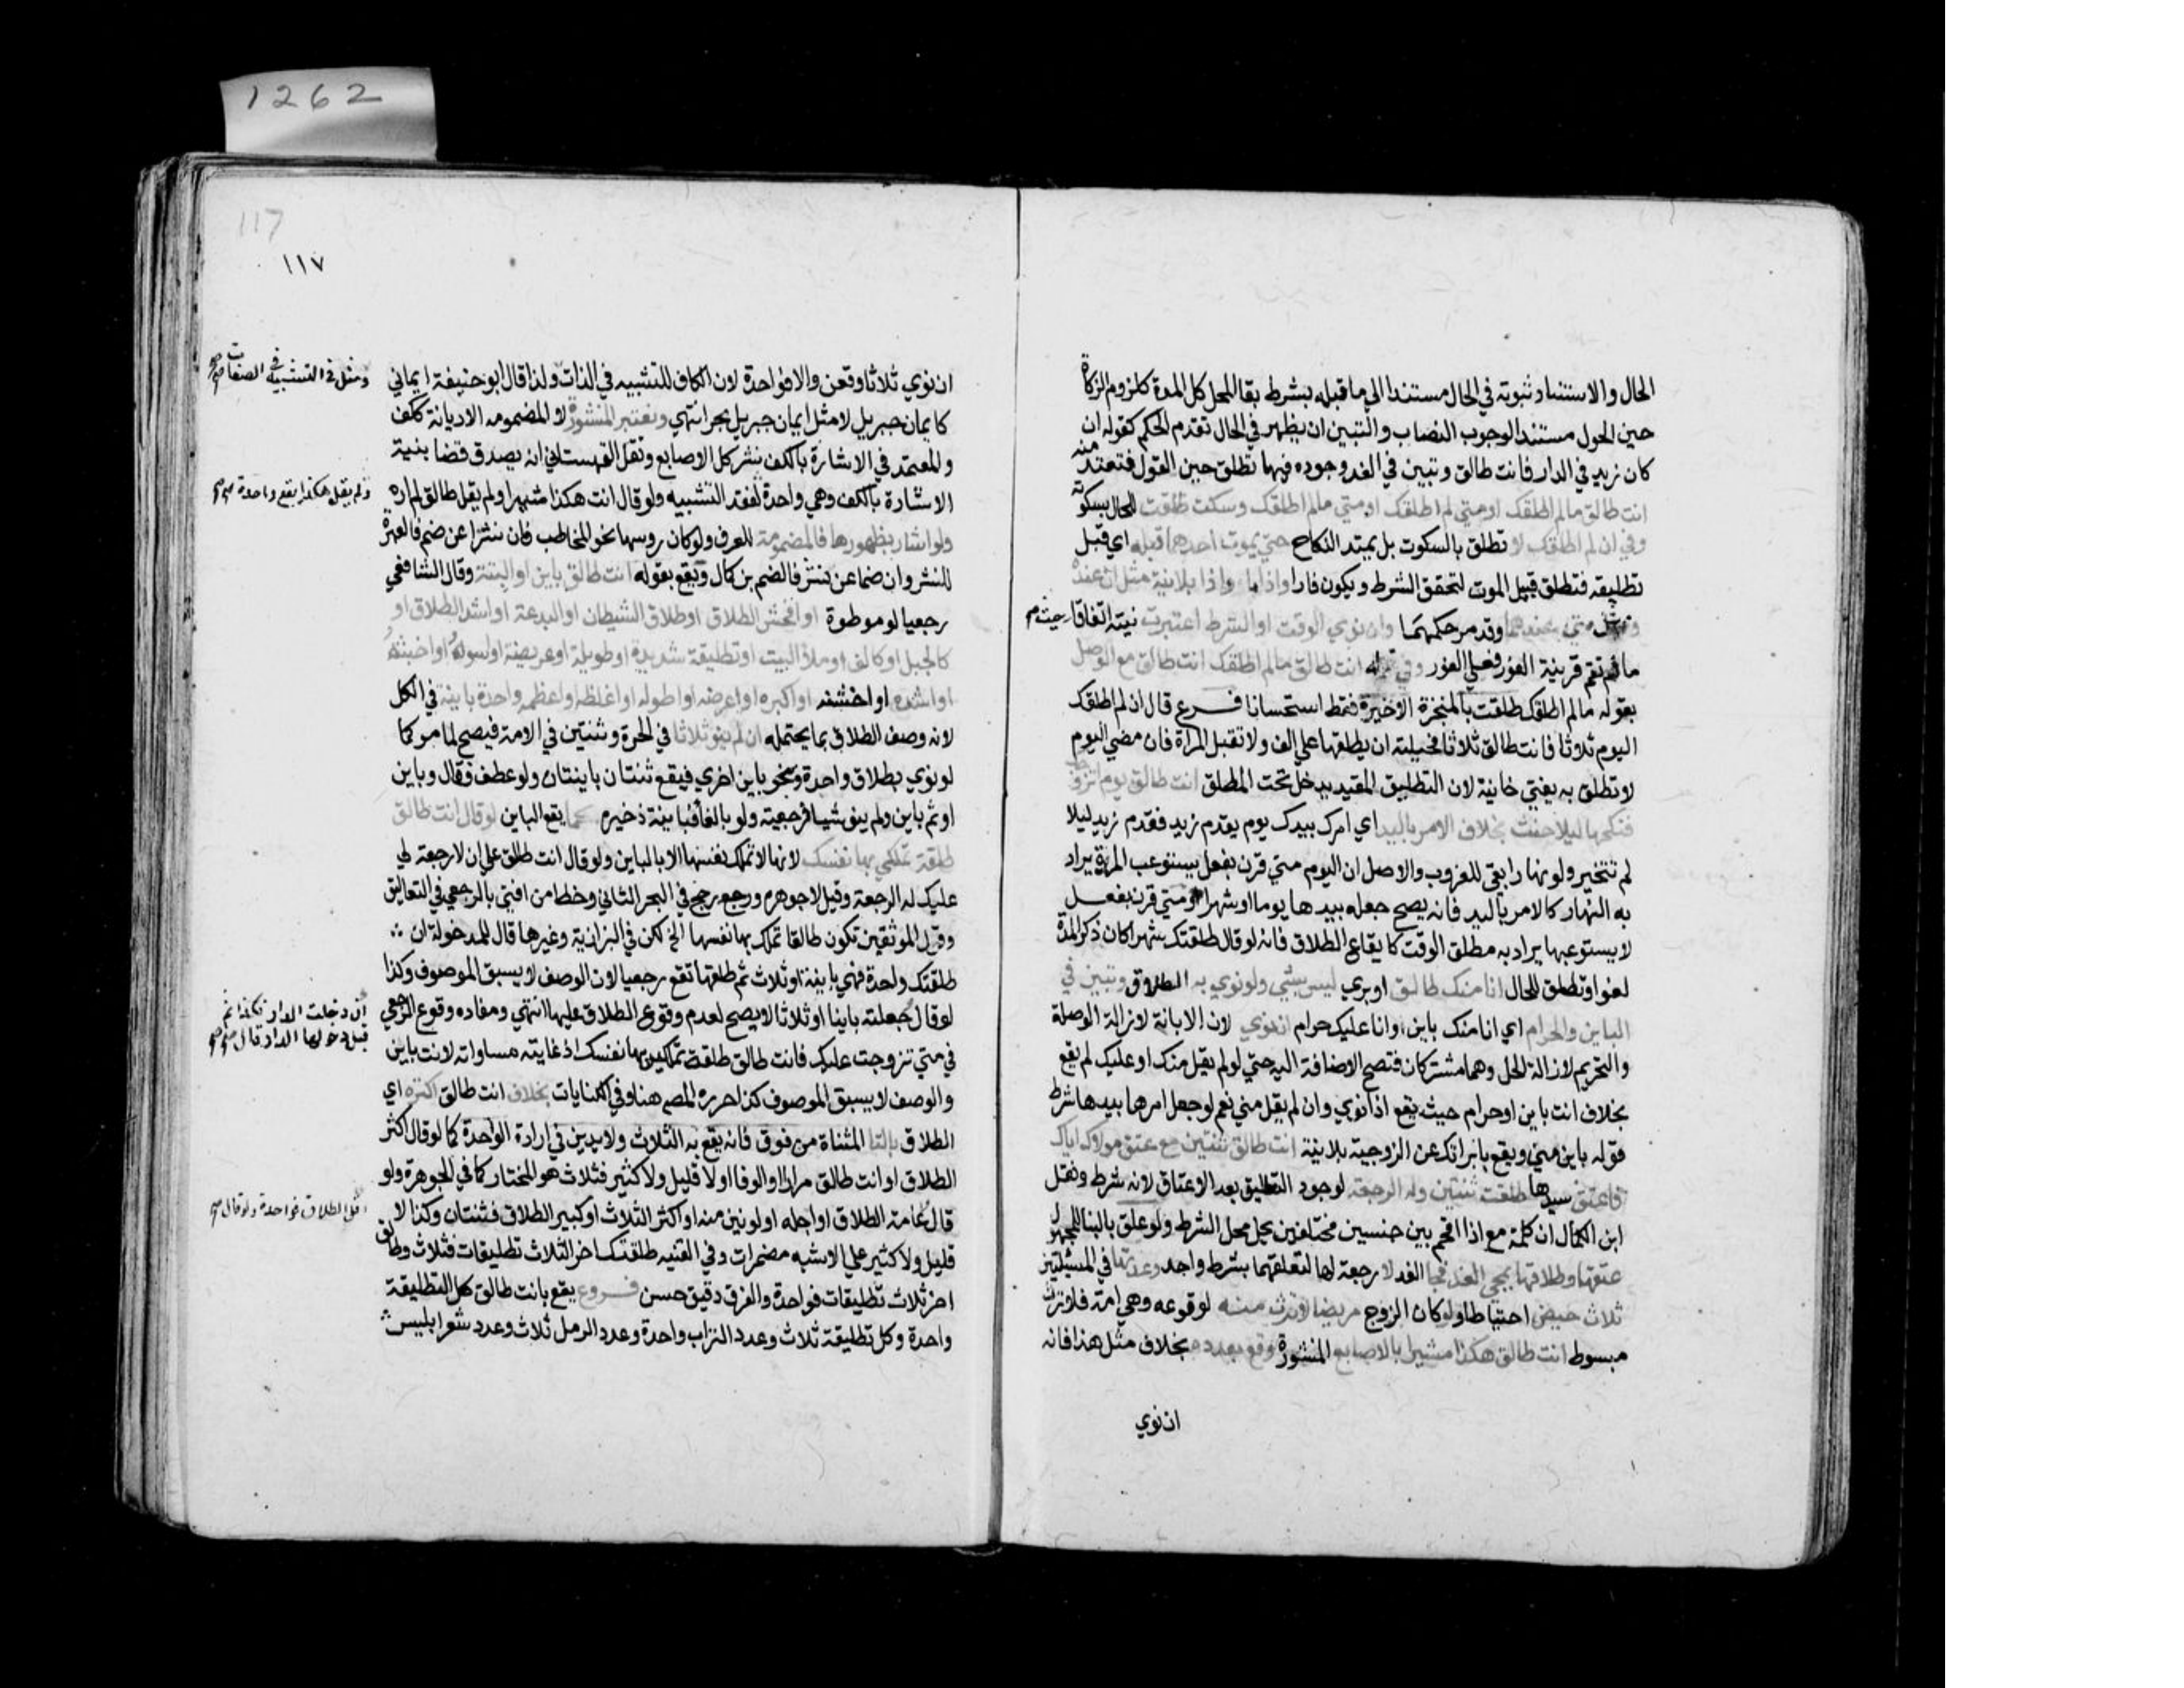 الحال والاستناد ثبوته في الحال مستندا الى ما قبله بشرط بقا المحل كل المدة كلزوم الزكاة
حين الحول مستندا لوجوب النصاب والتبين ان يظهر في الحال تقدم الحكم كقوله ان
كان زيد في الدار فانت طالق وتبين في الغد وجوده فيها تطلق حين القول فتعتد منه
انت طالق ما لم اطلقك او متي لم اطلقك او متي ما لم اطلقك وسكت طلقت للحال بسكوته
وفي ان لم اطلقك لا تطلق بالسكوت بل يمتد النكاح حتي يموت احدهما قبله اي قبل
تطليقه فتطلق قبيل الموت لتحقق الشرط ويكون فارا واذا ما واذا بلا نية مثل ان عنده
متي عندهما وقد مر حكمهما وان نوي الوقت او الشرط اعتبرت نيته اتفاقا
ما لم تقم قرينة الفور فعلي الفور وفي قوله انت طالق ما لم اطلقك انت طالق مع الوصل
بقوله ما لم اطلقك طلقت بالمنجزة الاخيرة فقط استحسانا فرع قال ان لم اطلقك
اليوم ثلاثا فانت طالق ثلاثا فحيلته ان يطلقها علي الف ولا تقبل المراة فان مضي اليوم
لا تطلق به يفتي خانية لان التطليق المقيد يدخل تحت المطلق انت طالق يوم اتزوجك
فنكحها ليلا حنث بخلاف الامر باليد اي امرك بيدك يوم يقدم زيد فقدم زيد ليلا
لم تتخير ولو نهارا بقي للغروب والاصل ان اليوم متي قرن بفعل يستوعب المدة يراد
به النهار كالامر باليد فانه يصح جعله بيدها يوما او شهرا ومتي قرن بفعل
لا يستوعبها يراد به مطلق الوقت كايقاع الطلاق فانه لو قال طلقتك شهرا كان ذكر المدة
لغوا وتطلق للحال انا منك طالق او بري ليس بشي ولو نوي به الطلاق وتبين في
الباين والحرام اي انا منك باين او انا عليك حرام ان نوي لان الابانة لازالة الوصلة
والتحريم لازالة الحل وهما مشتركان فتصح الاضافة اليه حتي لو لم يقل منك او عليك لم يقع
بخلاف انت باين او حرام حيث يقع اذا نوي وان لم يقل مني نعم لو جعل امرها بيدها شرط
قوله باين مني ويقع بابراتك عن الزوجية بلا نية انت طالق ثنتين مع عتق مولاك اياك
فاعتق سيدها طلقت ثنتين وله الرجعة لوجود التطليق بعد الاعتاق لانه شرط ونقل
ابن الكمال ان كلمة مع اذا اقحم بين جنسين مختلفين يحل محل الشرط ولو علق بالبنا للمجهول
عتقها وطلاقها بمجي الغد فجا الغد لا رجعة لها لتعلقهما بشرط واحد وعدتها في المسئلتين
ثلاث حيض احتياطا ولو كان الزوج مريضا لا ترث منه لوقوعه وهي امة فلا ترث
مبسوط انت طالق هكذا مشيرا بالاصابع المنشورة وقع بعدده بخلاف مثل هذا فانه
ان نوي
١١٧
117
1262
ان نوي ثلاثا وقعن والا فواحدة لان الكاف للتشبيه في الذات ولذا قال ابو حنيفة ايماني
ومثل في التشبيه في الصفات صح
كايمان جبريل لا مثل ايمان جبريل بحر انتهي وتعتبر المنشورة لا المضمومة الا ديانة ككف
والمعتمد في الاشارة بالكف نشر كل الاصابع ونقل القهستاني انه يصدق قضا بنية
الاشارة بالكف وهي واحدة لفقد التشبيه ولو قال انت هكذا مشيرا ولم يقل طالق لم اره
ولم يقل هكذا يقع واحدة صح
ولو اشار بظهورها فالمضمومة للعرف ولو كان روسها نحو المخاطب فان نشرا عن ضم فالعبرة
للنشر وان ضما عن نشر فالضم بن كمال ويقع بقوله انت طالق باين او البتة وقال الشافعي
رجعيا لو موطوة او افحش الطلاق او طلاق الشيطان او البدعة او اشد الطلاق او
كالجبل او كالف او ملأ البيت او تطليقة شديدة او طويلة او عريضة او اسوأه او اخبثه
او اشده او اخشنه او اكبره او اعرضه او اطوله او اغلظه او اعظمه واحدة باينة في الكل
لانه وصف الطلاق بما يحتمله ان لم ينو ثلاثا في الحرة وثنتين في الامة فيصح لما مر كما
لو نوي بطلاق واحدة وبنحو باين اخري فيقع ثنتان باينتان ولو عطف فقال وباين
او ثم باين ولم ينو شيا فرجعية ولو بالفا فباينة ذخيرة كما يقع الباين لو قال انت طالق
طلقة تملكي بها نفسك لانها لا تملك نفسها الا بالباين ولو قال انت طالق علي ان لا رجعة لي
عليك له الرجعة وقيل لا جوهره ورجع رجح في البحر الثاني وخطا من افتي بالرجعي في التعاليق
وقول الموثقين تكون طالقا تملك بها نفسها الخ لكن في البزازية وغيرها قال للمدخولة ان
طلقتك واحدة فهي باينة او ثلاث ثم طلقها تقع رجعيا لان الوصف لا يسبق الموصوف وكذا
لو قال جعلته باينا او ثلاثا لا يصح لعدم وقوع الطلاق عليها انتهي ومفاده وقوع الرجعي
ان دخلت الدار فكذا ثم
قبل دخولها الدار قال صح
في متي تزوجت عليك فانت طالق طلقة تملكين بها نفسك اذ غايته مساواته لانت باين
والوصف لا يسبق الموصوف كذا حرره المصـ هنا وفي الكنايات بخلاف انت طالق اكثره اي
الطلاق بالتا المثناة من فوق فانه يقع به الثلاث ولا يدين في ارادة الواحدة كما لو قال اكثر
الطلاق او انت طالق مرارا او الوفا او لا قليل ولا كثير فثلاث هو المختار كما في الجوهرة ولو
اقل الطلاق فواحدة ولو قال صح
قال عامة الطلاق او اجله او لونين منه او اكثر الثلاث او كبير الطلاق فثنتان وكذا لا
قليل ولا كثير علي الاشبه مضمرات وفي القنيه طلقتك اخر الثلاث تطليقات فثلاث وطالق
اخر ثلاث تطليقات فواحدة والفرق دقيق حسن فروع يقع بانت طالق كل التطليقة
واحدة وكل تطليقة ثلاث وعدد التراب واحدة وعدد الرمل ثلاث وعدد شعر ابليس